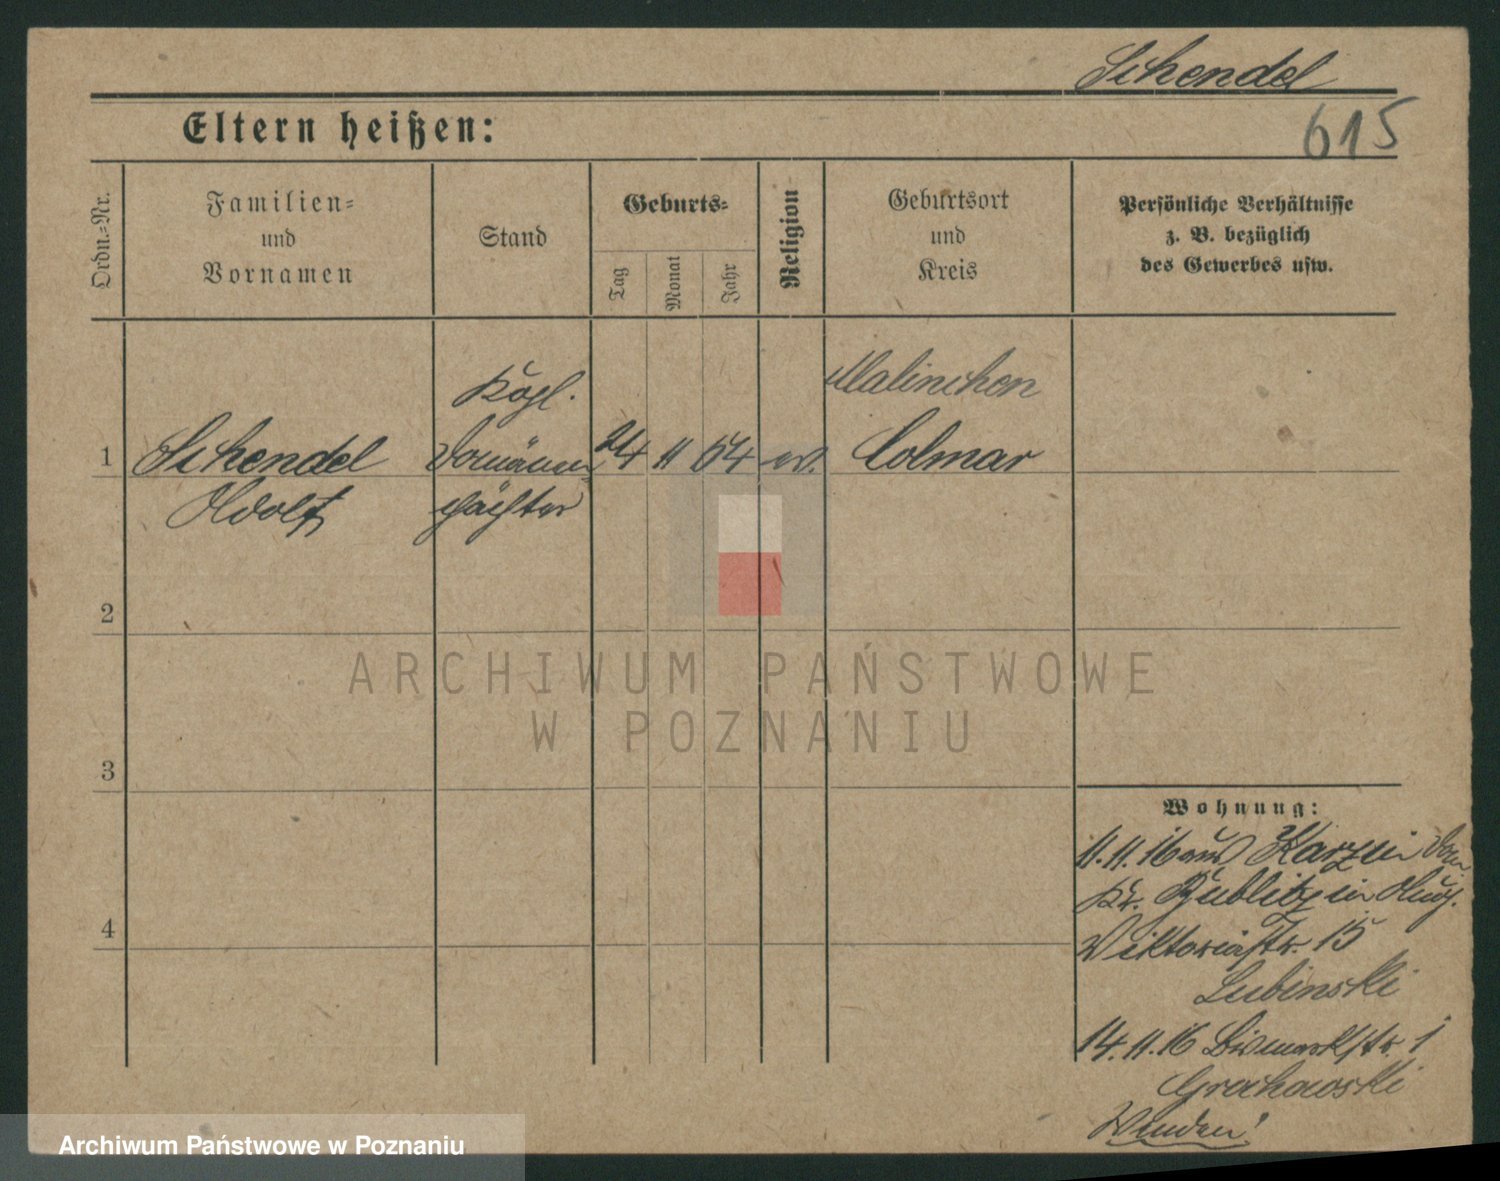 Schendel
Eltern heißen:
615
Ordn.-Nr.
Familien-
und
Vornamen
Stand
Geburts-
Tag
Monat
Jahr
Religion
Geburtsort
und
Kreis
Persönliche Verhältnisse
z. B. bezüglich
des Gewerbes usw.
1
Schendel
Adolf
Kögl.
Domänen
pächter
24
11
64
ev.
Malinchen
Colmar
2
ARCHIWUM PAŃSTWOWE
W POZNANIU
3
Wohnung:
11.11.16 aus Karzin Dom.
Kr. Bublitz in
Viktoriastr. 15
Lubinski
4
14.11.16 Bismarkstr. 1
Grochowski
Archiwum Państwowe w Poznaniu